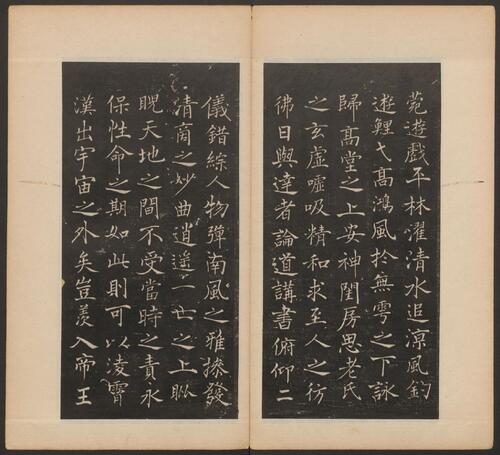 苑遊戲平林濯清水追涼風釣
遊鯉弋高鴻風於無雩之下詠
歸高堂之上安神閨房思老氏
之玄虛噓吸精和求至人之彷
彿日與達者論道講書俯仰二
儀錯綜人物彈南風之雅操發
清商之妙曲逍遙一世之上睥
睨天地之間不受當時之責永
保性命之期如此則可以淩霄
漢出宇宙之外矣豈羨入帝王